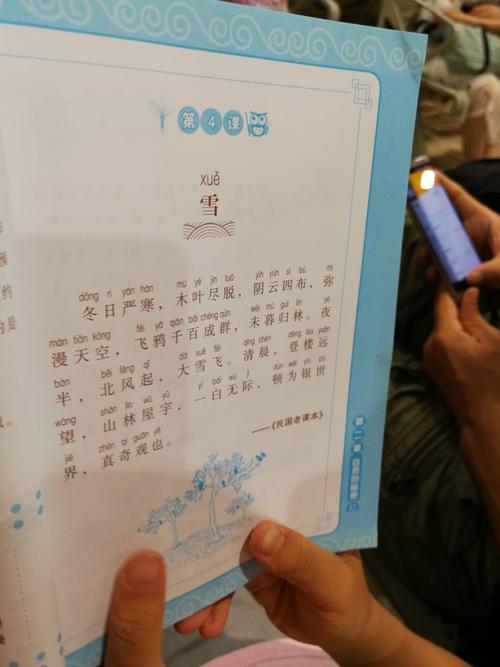 第4课
xuě
雪
dōng rì yán hán mù yè jìn tuō yīn yún sì bù mí
冬日严寒，木叶尽脱，阴云四布，弥
màn tiān kōng fēi yā qiān bǎi chéng qún wèi mù guī lín yè
漫天空，飞鸦千百成群，未暮归林。夜
bàn běi fēng qǐ dà xuě fēi qīng chén dēng lóu yuǎn
半，北风起，大雪飞。清晨，登楼远
wàng shān lín wū yǔ yì bái wú jì dùn wéi yín shì
望，山林屋宇，一白无际，顿为银世
jiè zhēn qí guān yě
界，真奇观也。
——《民国老课本》